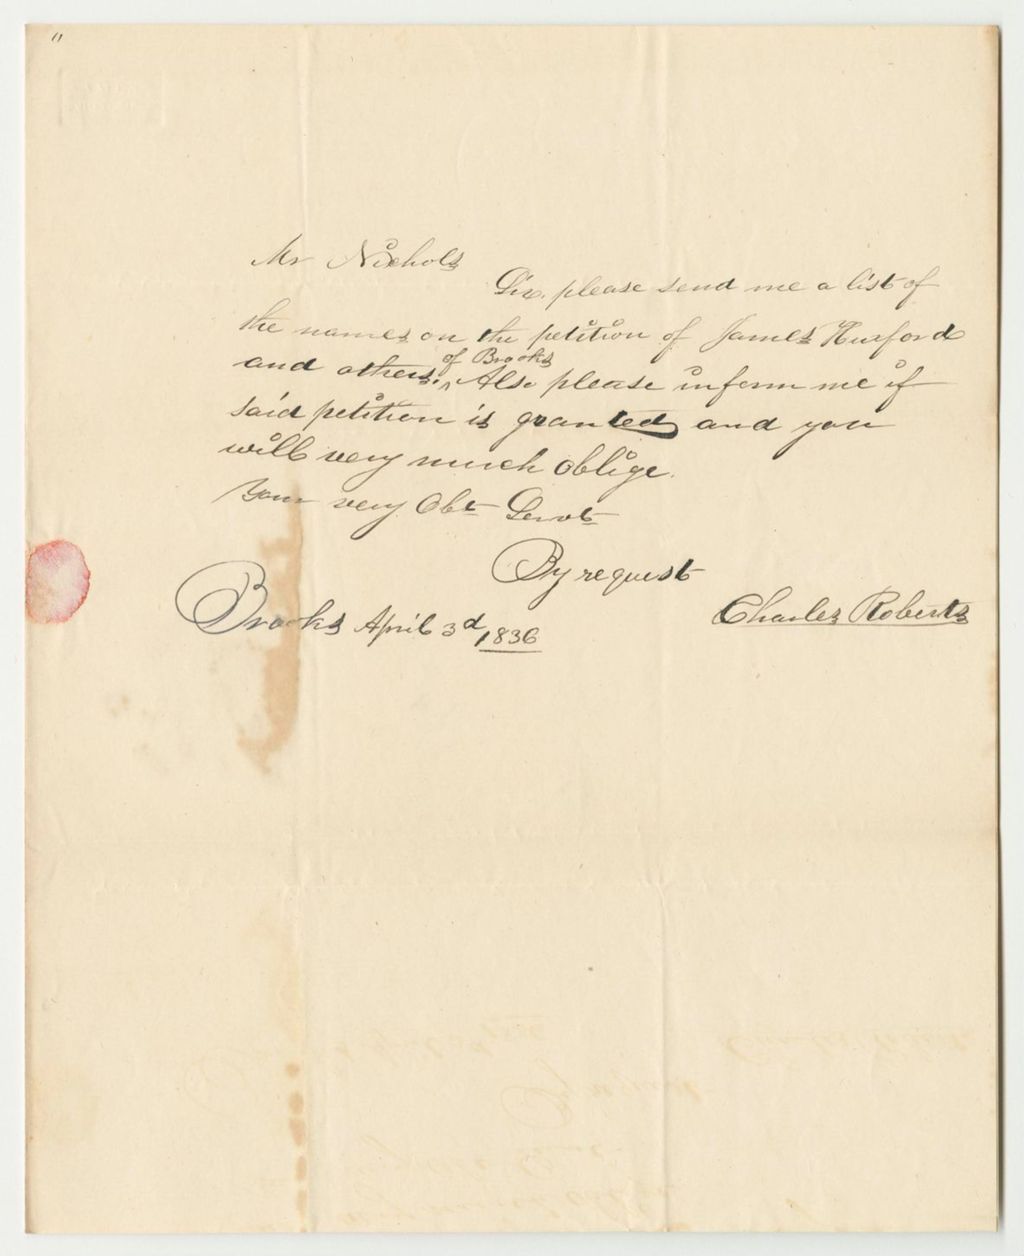 Mr Nichols
Sir, please send me a list of
the names on the petition of James Huxford
and others, of Brooks Also please inform me if
said petition is granted and you
will very much oblige.
Your very Obt Servt
By request
Charles Roberts
Brooks April 3d, 1836